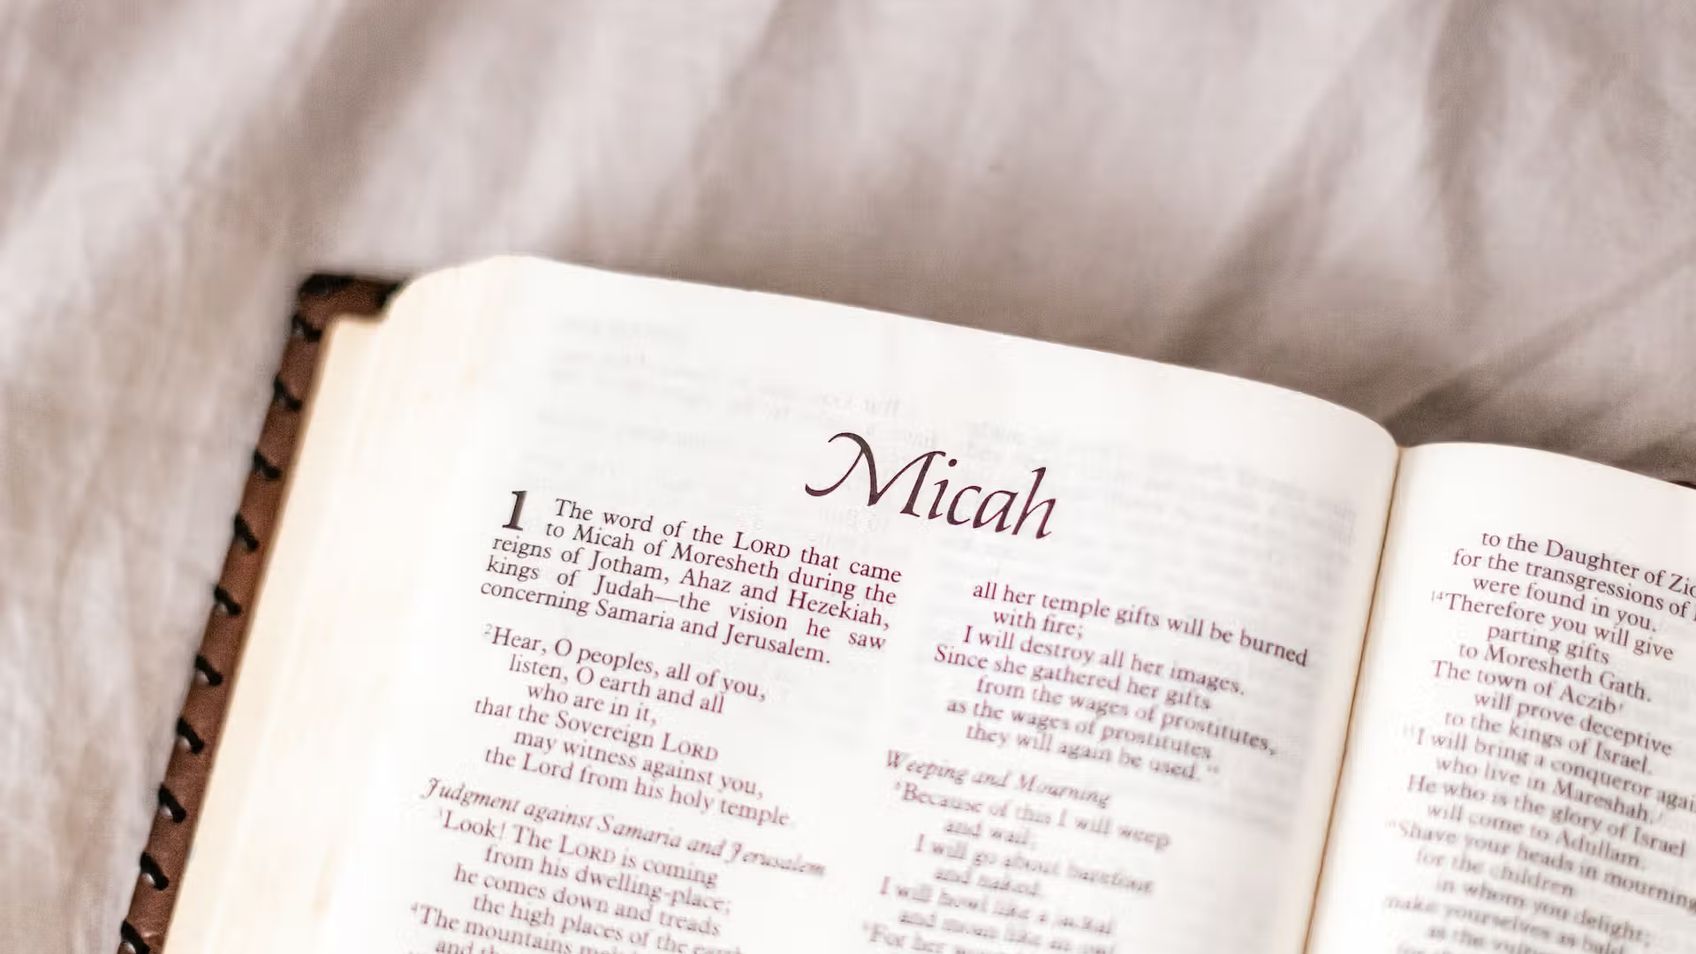 Micah
1 The word of the LORD that came
to Micah of Moresheth during the
reigns of Jotham, Ahaz and Hezekiah,
kings of Judah—the vision he saw
concerning Samaria and Jerusalem.
2Hear, O peoples, all of you,
listen, O earth and all
who are in it,
that the Sovereign LORD
may witness against you,
the Lord from his holy temple.
Judgment against Samaria and Jerusalem
Look! The LORD is coming
from his dwelling-place;
he comes down and treads
the high places of the earth
4The mountains melt
and the
all her temple gifts will be burned
with fire;
I will destroy all her images.
Since she gathered her gifts
from the wages of prostitutes,
as the wages of prostitutes
they will again be used."
Weeping and Mourning
8Because of this I will weep
and wail;
I will go about barefoot
and naked.
I will howl like a jackal
and moan like an owl
For her
to the Daughter of Zio
for the transgressions of
were found in you.
14Therefore you will give
parting gifts
to Moresheth Gath.
The town of Aczib
will prove deceptive
to the kings of Israel.
I will bring a conqueror agai
who live in Mareshah.
He who is the glory of Israel
will come to Adullam.
Shave your heads in mourning
for the children
in whom you delight;
make yourselves as bald
as the vulture